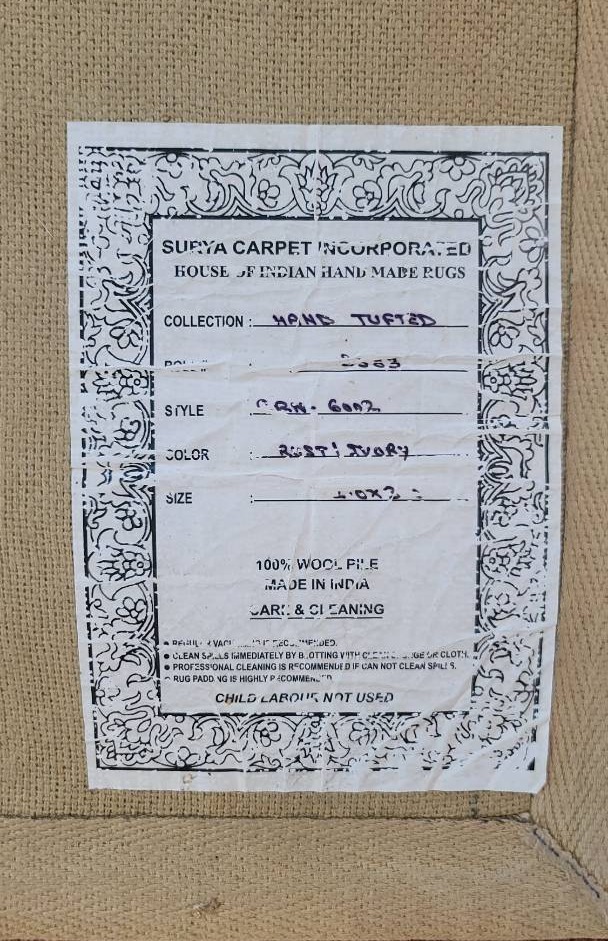 SURYA CARPET INCORPORATED
HOUSE OF INDIAN HAND MADE RUGS
COLLECTION : HAND TUFTED
ROLL #
STYLE : 6002
COLOR : RUST / IVORY
SIZE :
100% WOOL PILE
MADE IN INDIA
CARE & CLEANING
• REGULAR VACUUMING IS RECOMMENDED.
• CLEAN SPILLS IMMEDIATELY BY BLOTTING WITH CLEAN SPONGE OR CLOTH.
• PROFESSIONAL CLEANING IS RECOMMENDED IF CAN NOT CLEAN SPILLS.
• RUG PADDING IS HIGHLY RECOMMENDED
CHILD LABOUR NOT USED